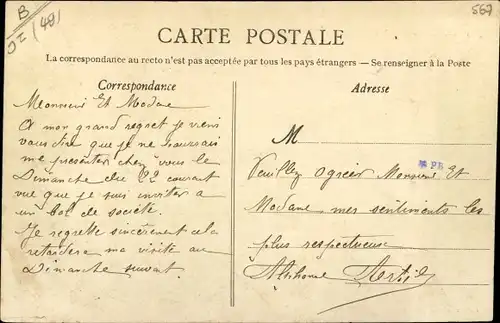 B
567
CARTE POSTALE
La correspondance au recto n'est pas acceptée par tous les pays étrangers — Se renseigner à la Poste
Correspondance
Monsieur Et Madame
A mon grand regret je viens
vous dire que je ne saurais
me présenter chez vous le
Dimanche du 22 courant
vue que je suis inviter a
un bal de société.
Je regrette sincèrement cela
retardera ma visite au
Dimanche suivant.
Adresse
M
PR
Veuillez agréer Monsieur Et
Madame mes sentiments les
plus respectueux
Alphonse